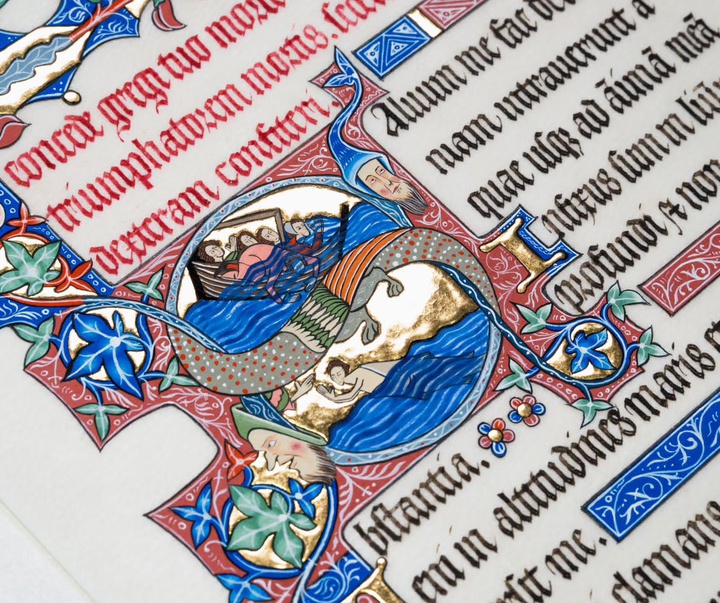 concede gregi tuo
triumphatorem mortis.
dexteram confiteri.
SAluum me fac
niam intrauerunt a
quae usqꝫ ad āīmā meā
Infixus sum in
profundi, & non
bstantia.
eni in altitudines maris
rsit me.
clamans